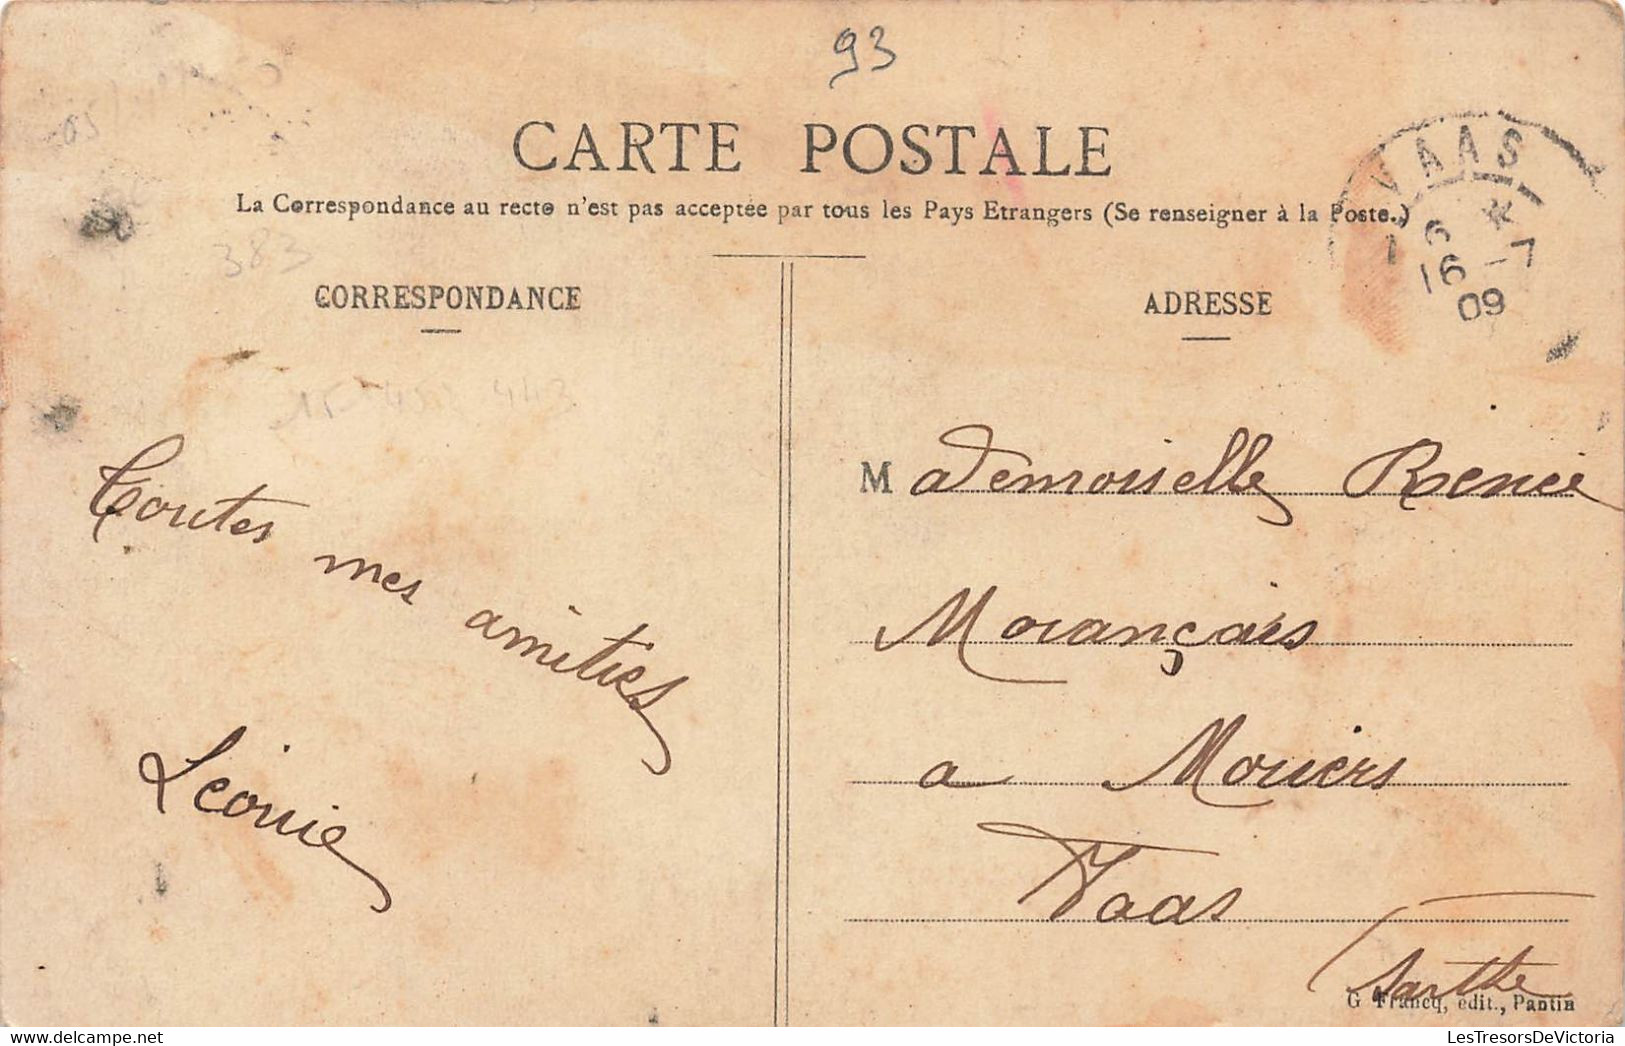 93
CARTE POSTALE
La Correspondance au recto n'est pas acceptée par tous les Pays Etrangers (Se renseigner à la Poste.)
VAAS
6 *
16 -7
09
383
CORRESPONDANCE
ADRESSE
443
Toutes
mes
amitiés
Léonie
Mademoiselle Renée
Morançais
a Moriers
Vaas
Sarthe
G Francq, édit., Pantin
LesTresorsDeVictoria